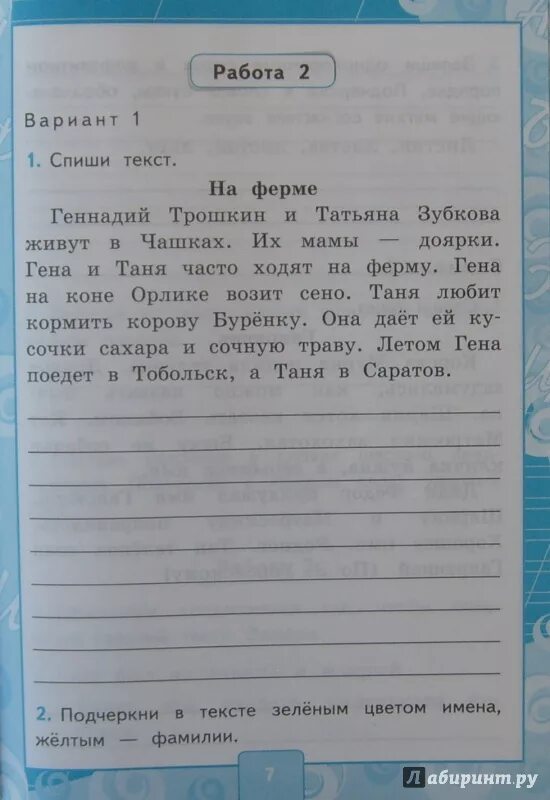 Работа 2
Вариант 1
1. Спиши текст.
На ферме
Геннадий Трошкин и Татьяна Зубкова
живут в Чашках. Их мамы — доярки.
Гена и Таня часто ходят на ферму. Гена
на коне Орлике возит сено. Таня любит
кормить корову Бурёнку. Она даёт ей ку-
сочки сахара и сочную траву. Летом Гена
поедет в Тобольск, а Таня в Саратов.
2. Подчеркни в тексте зелёным цветом имена,
жёлтым — фамилии.
7
Лабиринт.ру